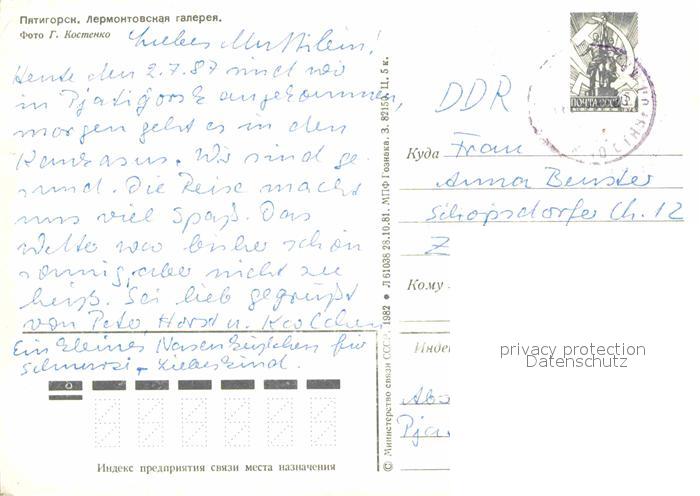 Пятигорск. Лермонтовская галерея.
Фото Г. Костенко
Liebes Muttilein!
Heute den 2.7.87 sind wir
in Pjatigorsk angekommen,
morgen geht es in den
Kaukasus. Wir sind ge-
sund. Die Reise macht
uns viel Spaß. Das
Wetter war bisher schön
sonnig, aber nicht zu
heiß. Sei lieb gegrüßt
von Peter, Horst u.
Ein kleines Nasenküßchen für
Liebeskind.
Индекс предприятия связи места назначения
© Министерство связи СССР. 1982 ● Л 61038 28.10.81. МПФ Гознака. З. 82155. Ц. 5 к.
ПОЧТА СССР
DDR
Куда Frau
Anna Benster
Schopsdorfer Ch. 12
Z
Кому
Инде
privacy protection
Datenschutz
Abs
Pja